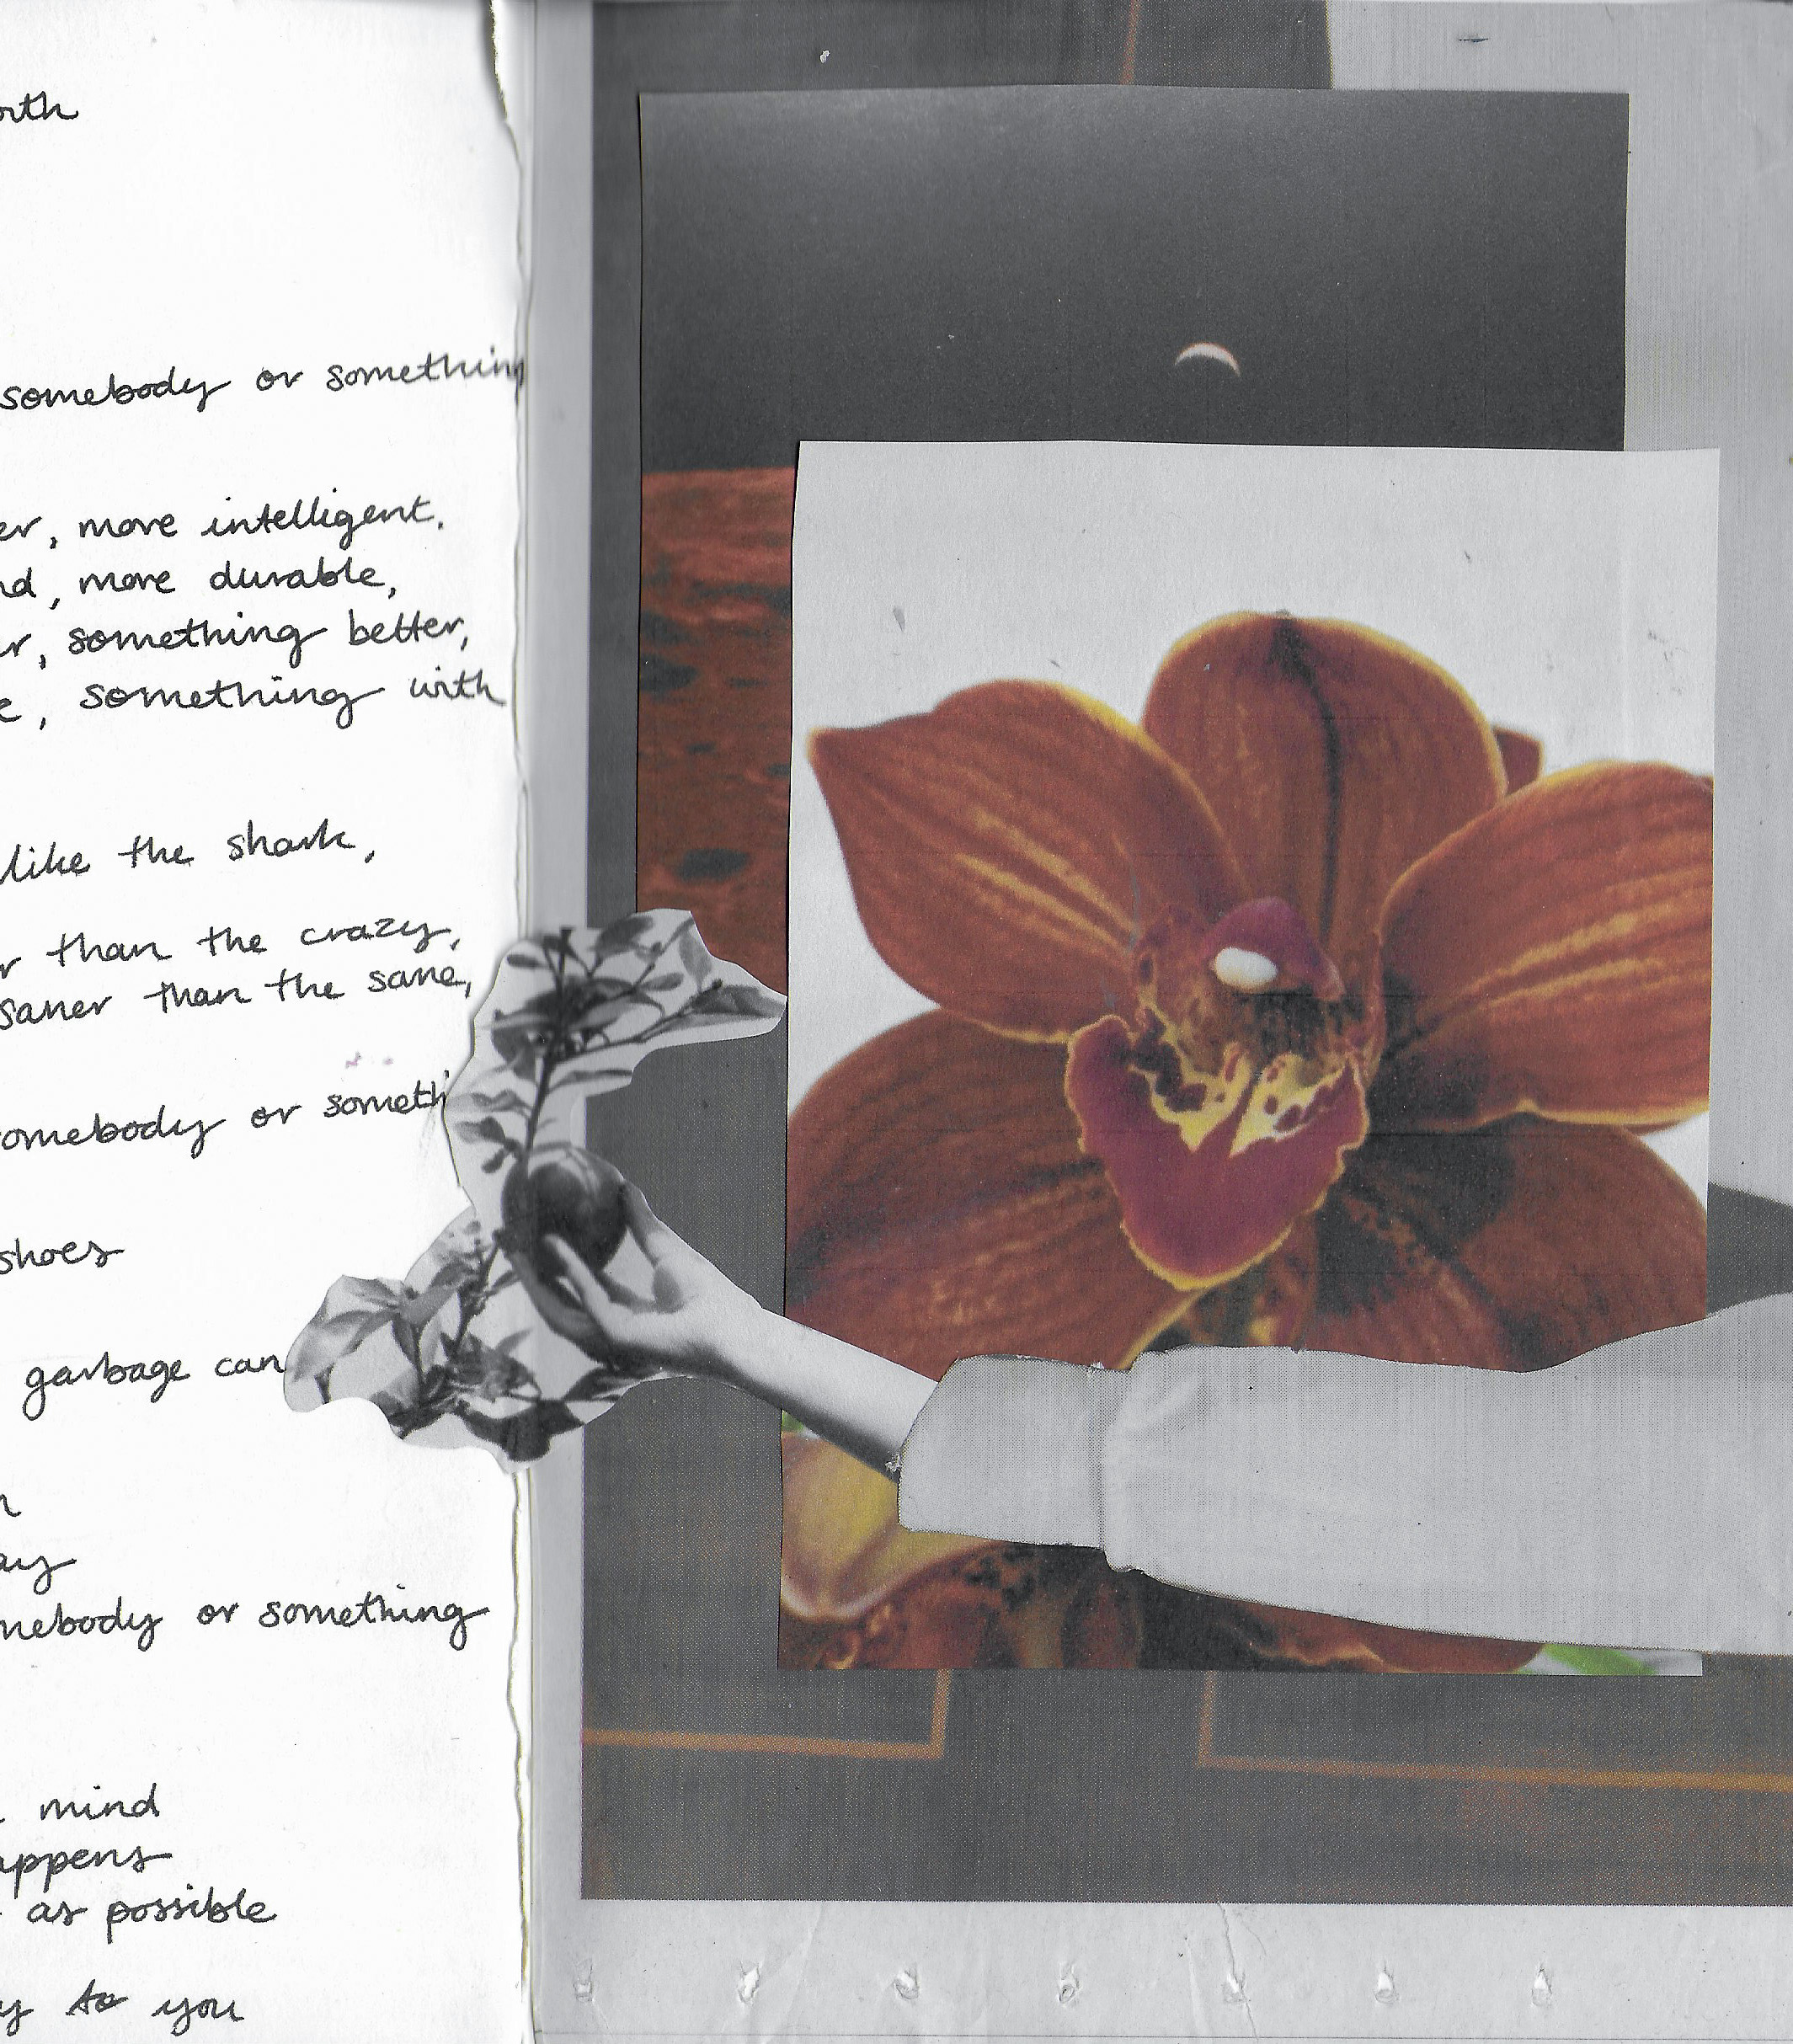 orth
somebody or something
er, more intelligent,
nd, more durable,
er, something better,
e, something with
like the shark,
r than the crazy,
saner than the sane,
omebody or somethi
shoes
garbage can
n
ay
mebody or something
mind
appens
as possible
y to you